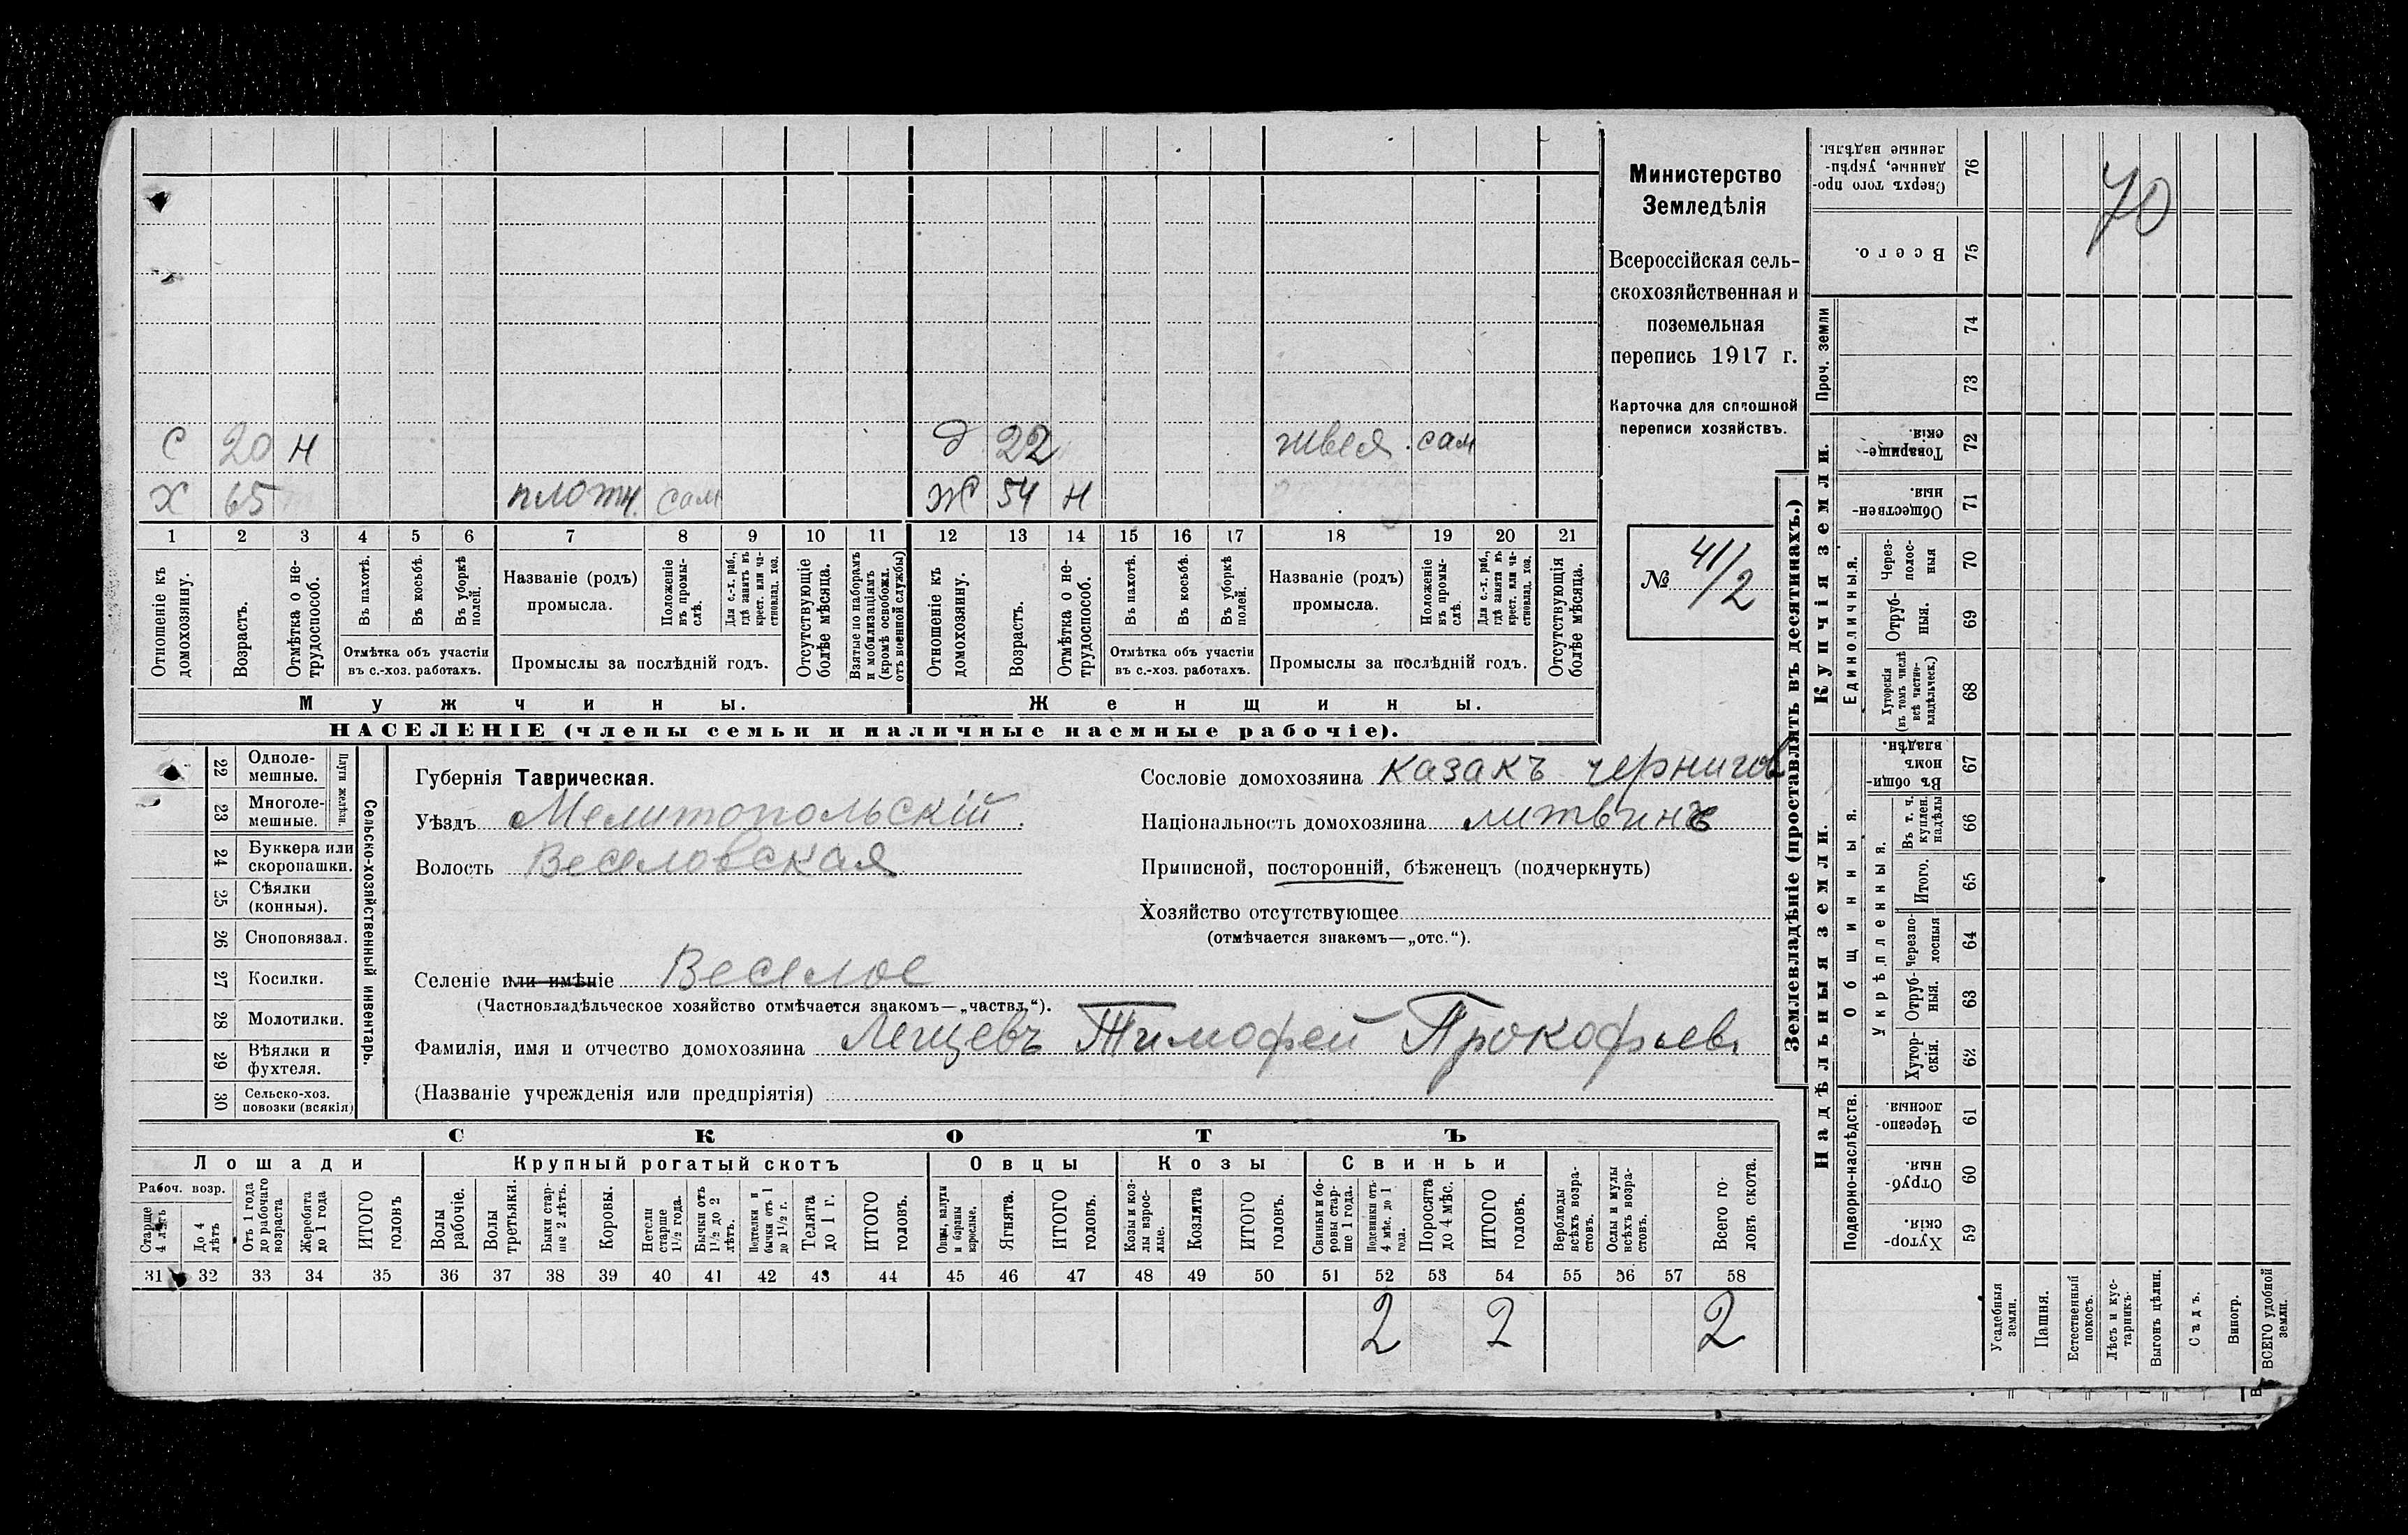 Министерство
Земледѣлія
Всероссійская сель-
скохозяйственная и
поземельная
перепись 1917 г.
Карточка для сплошной
переписи хозяйствъ.
№ 41/2
70
С 20 н д 22 швея сам
Х 65 плотн. сам Ж 54 н
1 2 3 4 5 6 7 8 9 10 11 12 13 14 15 16 17 18 19 20 21
Отношеніе къ домохозяину.
Возрастъ.
Отмѣтка о не-трудоспособ.
Въ пахотѣ.
Въ косьбѣ.
Въ уборкѣ полей.
Отмѣтка объ участіи
въ с.-хоз. работахъ.
Названіе (родъ)
промысла.
Положеніе въ промы-слѣ.
Для с.-х. раб., гдѣ занятъ въ крест. или ча-стновлад. хоз.
Промыслы за послѣдній годъ.
Отсутствующіе болѣе мѣсяца.
Взятые по наборамъ и мобилизаціямъ (кромѣ освобожд. отъ военной службы)
Отношеніе къ домохозяину.
Возрастъ.
Отмѣтка о не-трудоспособ.
Въ пахотѣ.
Въ косьбѣ.
Въ уборкѣ полей.
Отмѣтка объ участіи
въ с.-хоз. работахъ.
Названіе (родъ)
промысла.
Положеніе въ промы-слѣ.
Для с.-х. раб., гдѣ занята въ крест. или ча-стновлад. хоз.
Промыслы за послѣдній годъ.
Отсутствующія болѣе мѣсяца.
Мужчины. Женщины.
НАСЕЛЕНІЕ (члены семьи и наличные наемные рабочіе).
22 Одноле-мешные.
23 Многоле-мешные.
Плуги желѣзн.
24 Буккера или скоропашки.
25 Сѣялки (конныя).
26 Сноповязал.
27 Косилки.
28 Молотилки.
29 Вѣялки и фухтеля.
30 Сельско-хоз. повозки (всякія)
Сельско-хозяйственный инвентарь.
Губернія Таврическая.
Уѣздъ Мелитопольскій.
Волость Веселовская
Сословіе домохозяина казакъ чернигов
Національность домохозяина литвинъ
Приписной, посторонній, бѣженецъ (подчеркнуть)
Хозяйство отсутствующее
(отмѣчается знакомъ—„отс.“).
Селеніе или имѣніе Веселое
(Частновладѣльческое хозяйство отмѣчается знакомъ—„частвл.“).
Фамилія, имя и отчество домохозяина Лещевъ Тимофей Прокофьев.
(Названіе учрежденія или предпріятія)
СКОТЪ
Лошади Крупный рогатый скотъ Овцы Козы Свиньи
Рабоч. возр.
Старше 4 лѣтъ
До 4 лѣтъ
Отъ 1 года до рабочаго возраста
Жеребята до 1 года
ИТОГО головъ
Волы рабочіе.
Волы третьяки.
Быки стар-ше 2 лѣтъ.
Коровы.
Нетели старше 1½ года.
Бычки отъ 1½ до 2 лѣтъ.
Подтелки и бычки отъ 1 до 1½ г.
Телята до 1 г.
ИТОГО головъ.
Овцы, валухи и бараны взрослые.
Ягнята.
ИТОГО головъ.
Козы и коз-лы взрос-лые.
Козлята
ИТОГО головъ.
Свиньи и бо-ровы стар-ше 1 года.
Подсвинки отъ 4 мѣс. до 1 года.
Поросята до 4 мѣс.
ИТОГО головъ.
Верблюды всѣхъ возра-стовъ.
Ослы и мулы всѣхъ возра-стовъ.
Всего го-ловъ скота.
31 32 33 34 35 36 37 38 39 40 41 42 43 44 45 46 47 48 49 50 51 52 53 54 55 56 57 58
2 2 2
Землевладѣніе (проставлять въ десятинахъ.)
Надѣльныя земли. Купчія земли. Проч. земли
Подворно-наслѣдств. Общинныя. Единоличныя.
Укрѣпленныя.
Хутор-скія. 59
Отруб-ныя. 60
Черезпо-лосныя. 61
Хутор-скія. 62
Отруб-ныя. 63
Черезпо-лосныя 64
Итого. 65
Въ т. ч. куплен. надѣлы 66
Въ общи-номъ владѣн. 67
Хуторскія (въ томъ числѣ всѣ частно-владѣльческ.) 68
Отруб-ныя. 69
Через-полос-ныя 70
Обществен-ныя. 71
Товарище-скія. 72
73
74
Всего. 75
Сверхъ того про-данные, укрѣп-ленные надѣлы. 76
Усадебныя земли.
Пашня.
Естественный покосъ.
Лѣсъ и кус-тарникъ.
Выгонъ цѣлин.
Садъ.
Виногр.
ВСЕГО удобной земли.